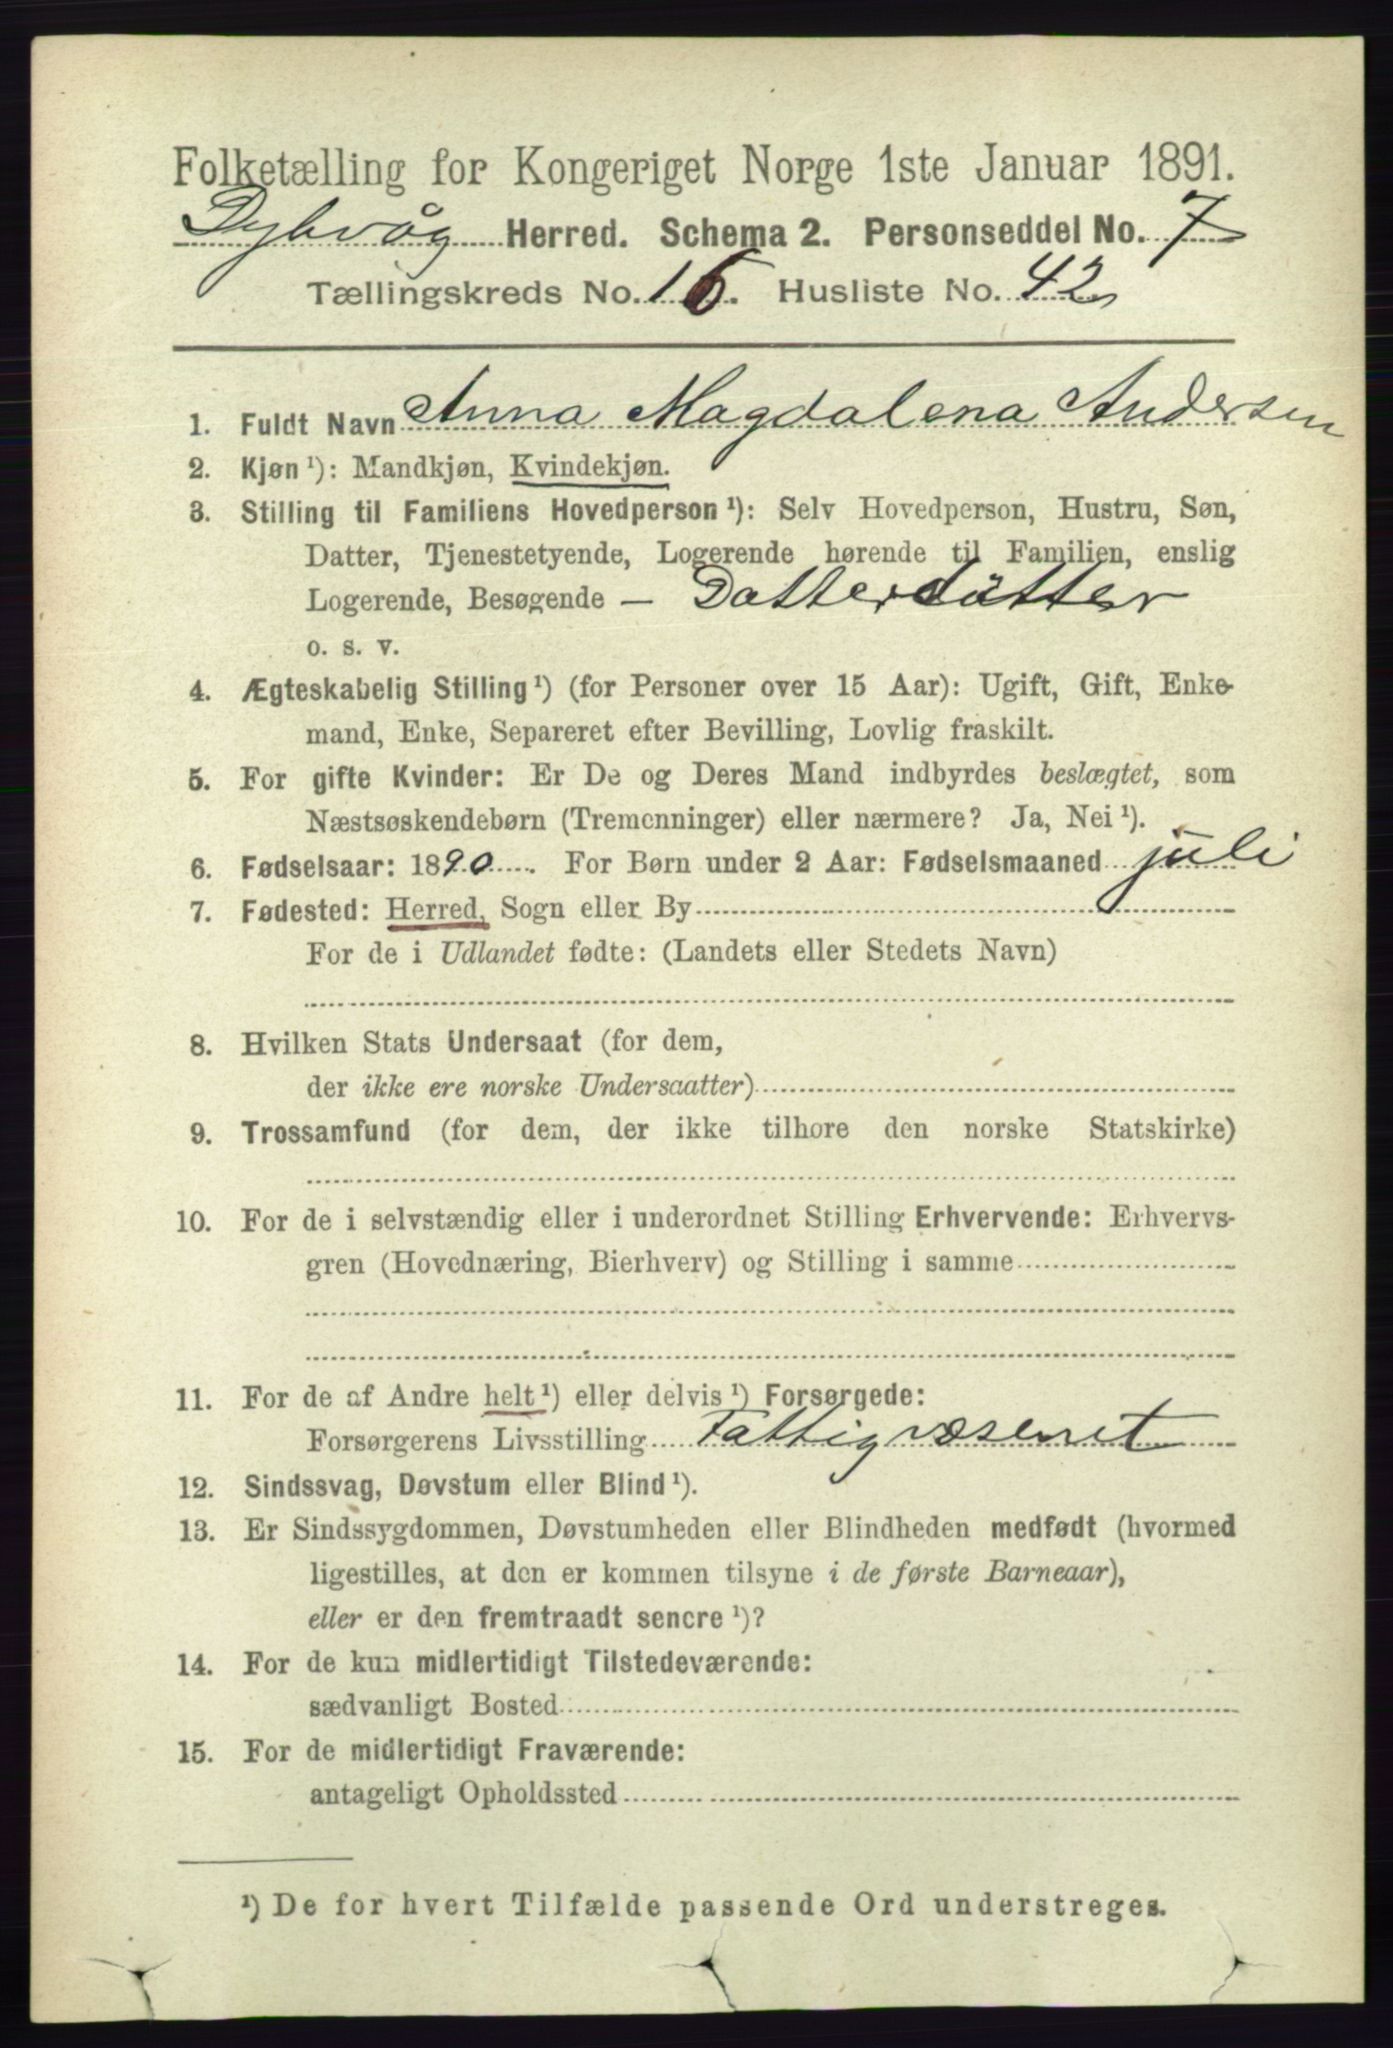 Folketælling for Kongeriget Norge 1ste Januar 1891.
Dybvåg Herred. Schema 2. Personseddel No. 7
Tællingskreds No. 16. Husliste No. 42
1. Fuldt Navn Anna Magdalena Andersen
2. Kjøn¹): Mandkjøn, Kvindekjøn.
3. Stilling til Familiens Hovedperson¹): Selv Hovedperson, Hustru, Søn,
Datter, Tjenestetyende, Logerende hørende til Familien, enslig
Logerende, Besøgende — Datterdatter
o. s. v.
4. Ægteskabelig Stilling¹) (for Personer over 15 Aar): Ugift, Gift, Enke-
mand, Enke, Separeret efter Bevilling, Lovlig fraskilt.
5. For gifte Kvinder: Er De og Deres Mand indbyrdes beslægtet, som
Næstsøskendebørn (Tremenninger) eller nærmere? Ja, Nei¹).
6. Fødselsaar: 1890. For Børn under 2 Aar: Fødselsmaaned juli
7. Fødested: Herred, Sogn eller By
For de i Udlandet fødte: (Landets eller Stedets Navn)
8. Hvilken Stats Undersaat (for dem,
der ikke ere norske Undersaatter)
9. Trossamfund (for dem, der ikke tilhøre den norske Statskirke)
10. For de i selvstændig eller i underordnet Stilling Erhvervende: Erhvervs-
gren (Hovednæring, Bierhverv) og Stilling i samme
11. For de af Andre helt¹) eller delvis¹) Forsørgede:
Forsørgerens Livsstilling Fattigvæsenet
12. Sindssvag, Døvstum eller Blind¹).
13. Er Sindssygdommen, Døvstumheden eller Blindheden medfødt (hvormed
ligestilles, at den er kommen tilsyne i de første Barneaar),
eller er den fremtraadt senere¹)?
14. For de kun midlertidigt Tilstedeværende:
sædvanligt Bosted
15. For de midlertidigt Fraværende:
antageligt Opholdssted
¹) De for hvert Tilfælde passende Ord understreges.